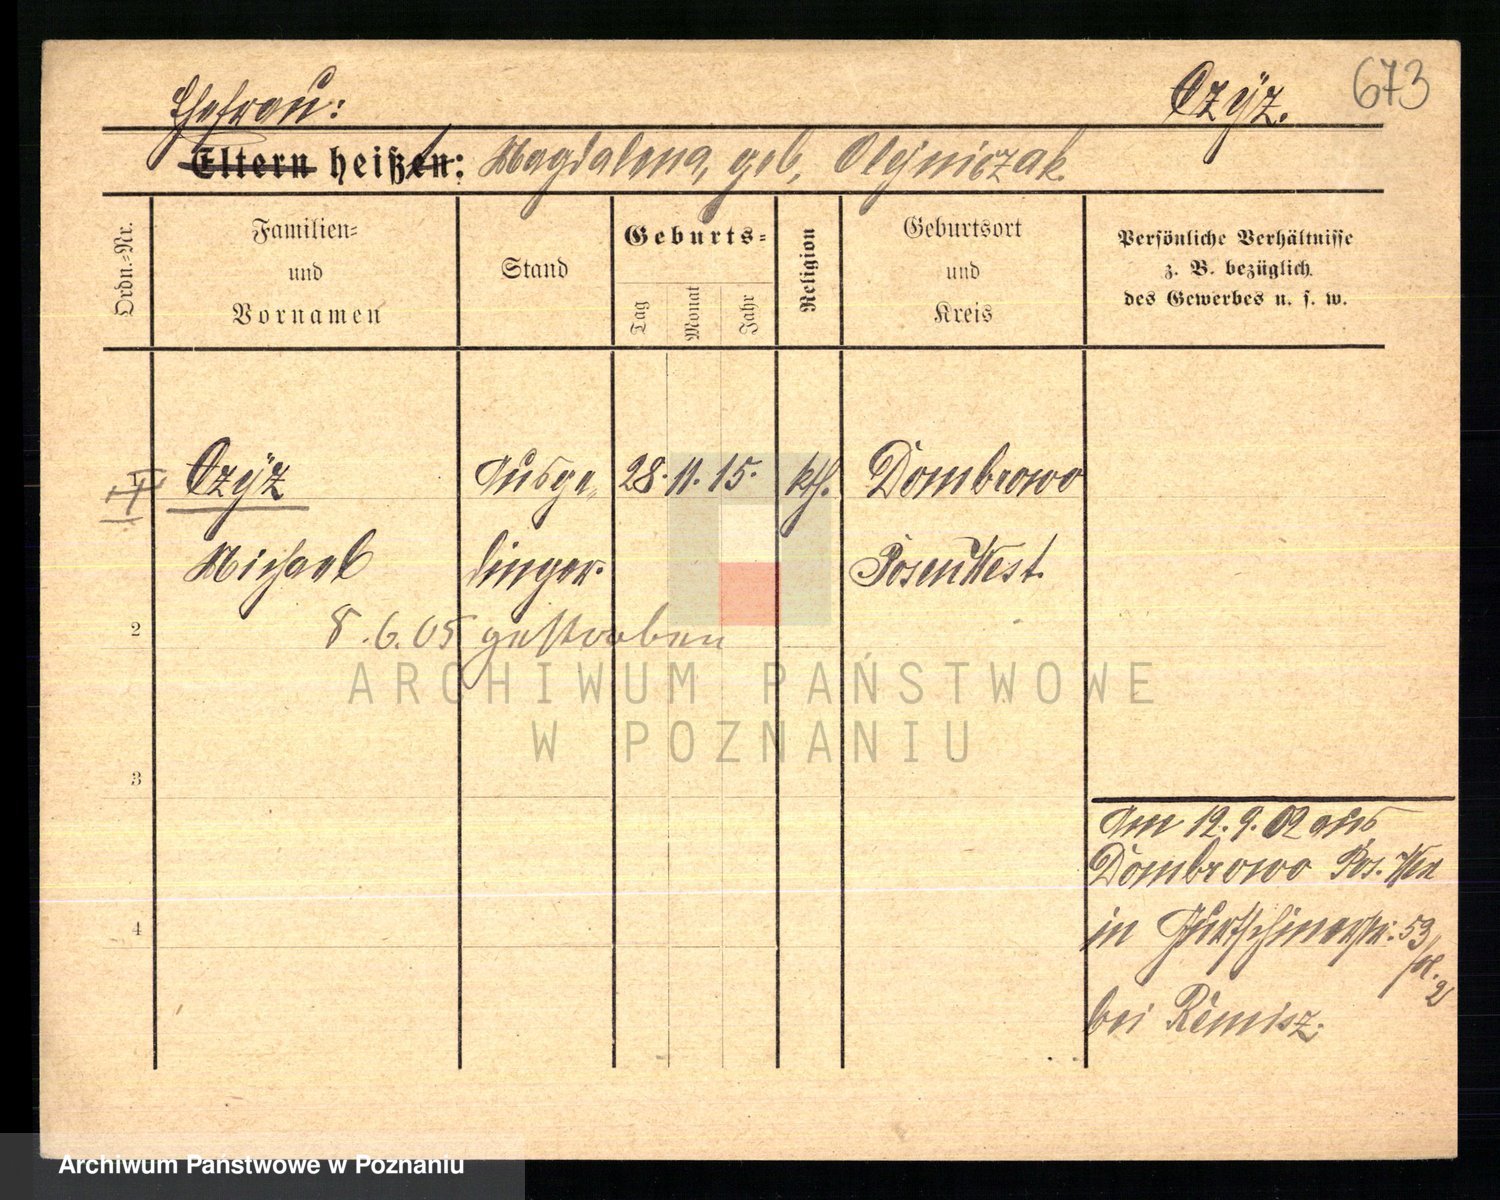 Ehefrau:
Czÿz.
673
Eltern heißen: Magdalena, geb. Olejniczak.
Ordn.-Nr.
Familien-
und
Vornamen
Stand
Geburts-
Tag
Monat
Jahr
Religion
Geburtsort
und
Kreis
Persönliche Verhältnisse
z. B. bezüglich
des Gewerbes u. s. w.
Czÿz Ausge- 28. 11. 15. kth. Dombrowo
Michael dinger. Posen West.
2
8.6.05 gestorben
ARCHIWUM PAŃSTWOWE
W POZNANIU
3
Am 12. 9. 02 aus
Dombrowo Pos. West
4
in 53
bei Remisz.
Archiwum Państwowe w Poznaniu